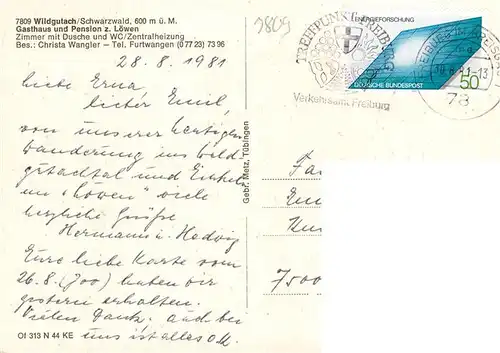 7809 Wildgutach/Schwarzwald, 600 m ü. M.
Gasthaus und Pension z. Löwen
Zimmer mit Dusche und WC/Zentralheizung
Bes.: Christa Wangler – Tel. Furtwangen (0 77 23) 73 96
28. 8. 1981
liebe Erna,
lieber Emil,
von unserer heutigen
Wanderung ins Wild
gutachtal und Einkehr
im "Löwen" viele
herzliche Grüße
Hermann u. Hedwig
Eure liebe Karte vom
26.8. (Zoo) haben wir
gestern erhalten.
Vielen Dank. auch bei
uns ist alles o.k.
Of 313 N 44 KE
Gebr. Metz, Tübingen
TREFFPUNKT FREIBURG
Verkehrsamt Freiburg
ENERGIEFORSCHUNG
DEUTSCHE BUNDESPOST
50
FREIBURG IM BREISGAU
78
7500